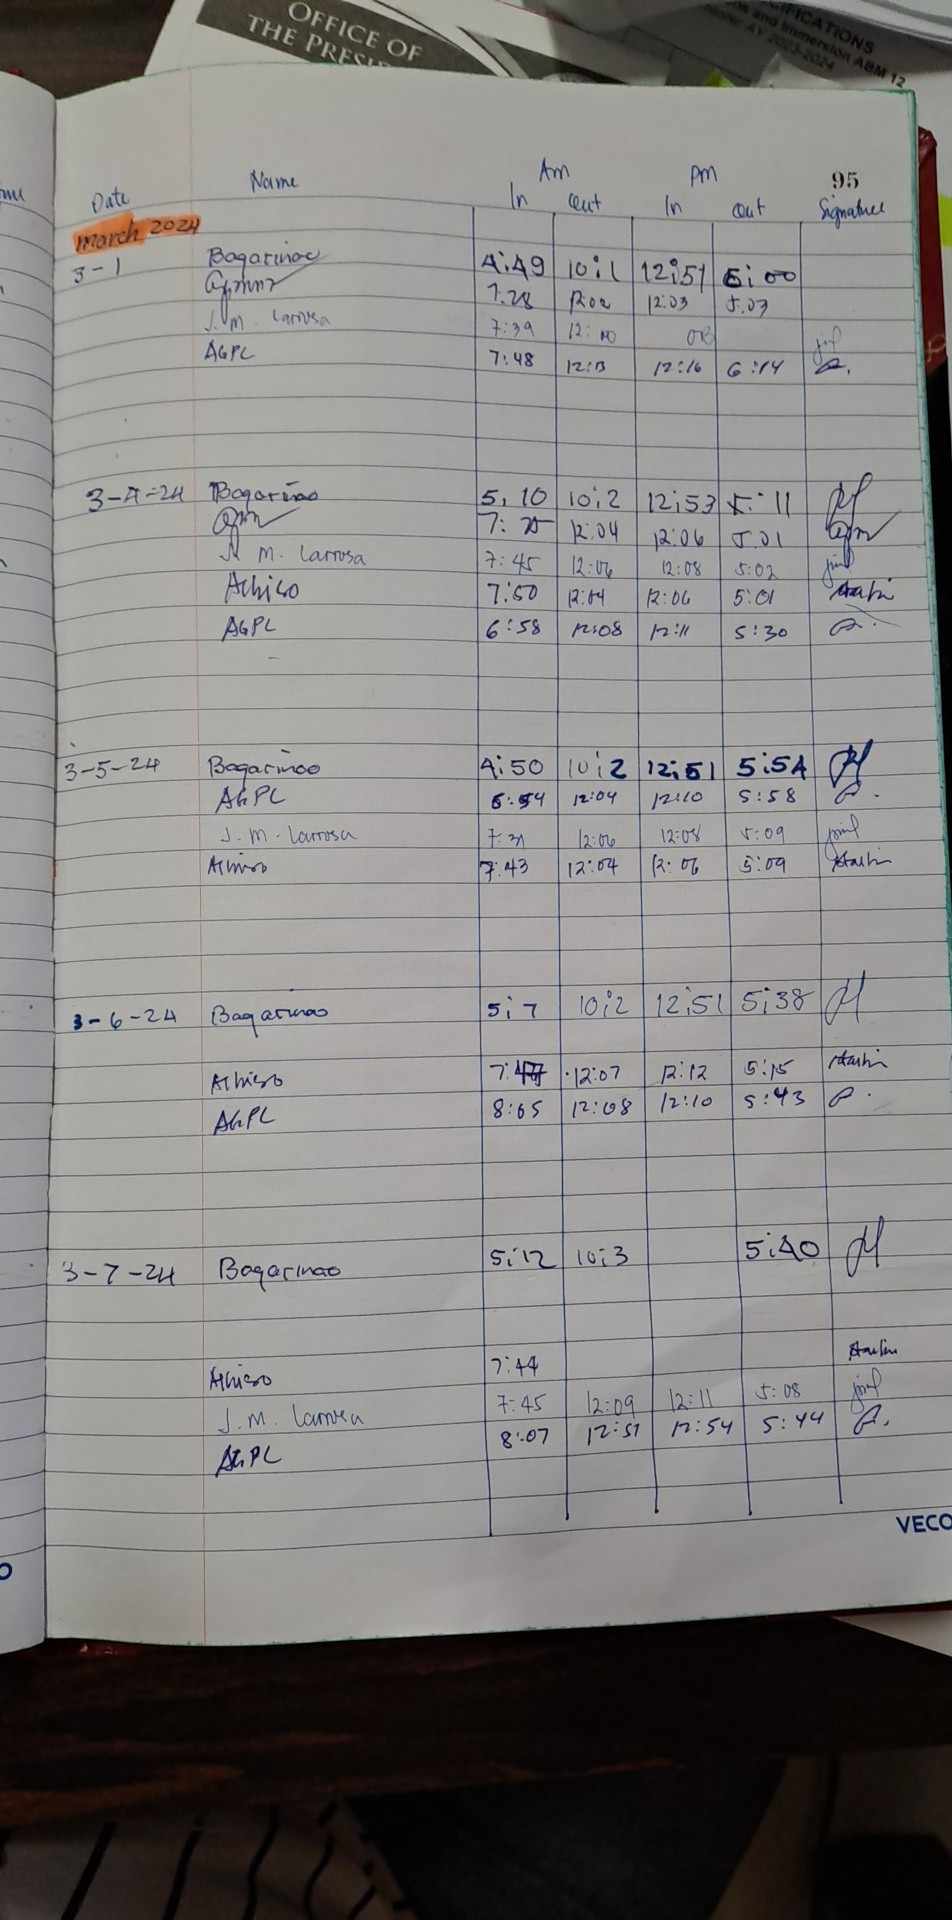 OFFICE OF
THE PRESI
IFICATIONS
and Immersion ABM 12
AY 2023-2024
Am Pm 95
Date Name In Out In Out Signature
March 2024
3-1 Bagarinao 4:49 10:1 12:51 5:00
7:28 12:02 12:03 5:03
J. M. Larrosa 7:39 12:10 OB
AGPL 7:48 12:13 12:16 6:14
3-4-24 Bagarinao 5:10 10:2 12:53 5:11
7: 12:04 12:06 5:01
J. M. Larrosa 7:45 12:06 12:08 5:02
Alhiso 7:50 12:04 12:06 5:01
AGPL 6:58 12:08 12:11 5:30
3-5-24 Bagarinao 4:50 10:2 12:51 5:54
AGPL 6:54 12:04 12:10 5:58
J. M. Larrosa 7:31 12:06 12:08 5:09
Alhiso 7:43 12:04 12:06 5:09
3-6-24 Bagarinao 5:7 10:2 12:51 5:38
Alhiso 7:47 12:07 12:12 5:15
AGPL 8:05 12:08 12:10 5:43
3-7-24 Bagarinao 5:12 10:3 5:40
Alhiso 7:44
J. M. Larrosa 7:45 12:09 12:11 5:08
AGPL 8:07 12:51 12:54 5:44
VECO